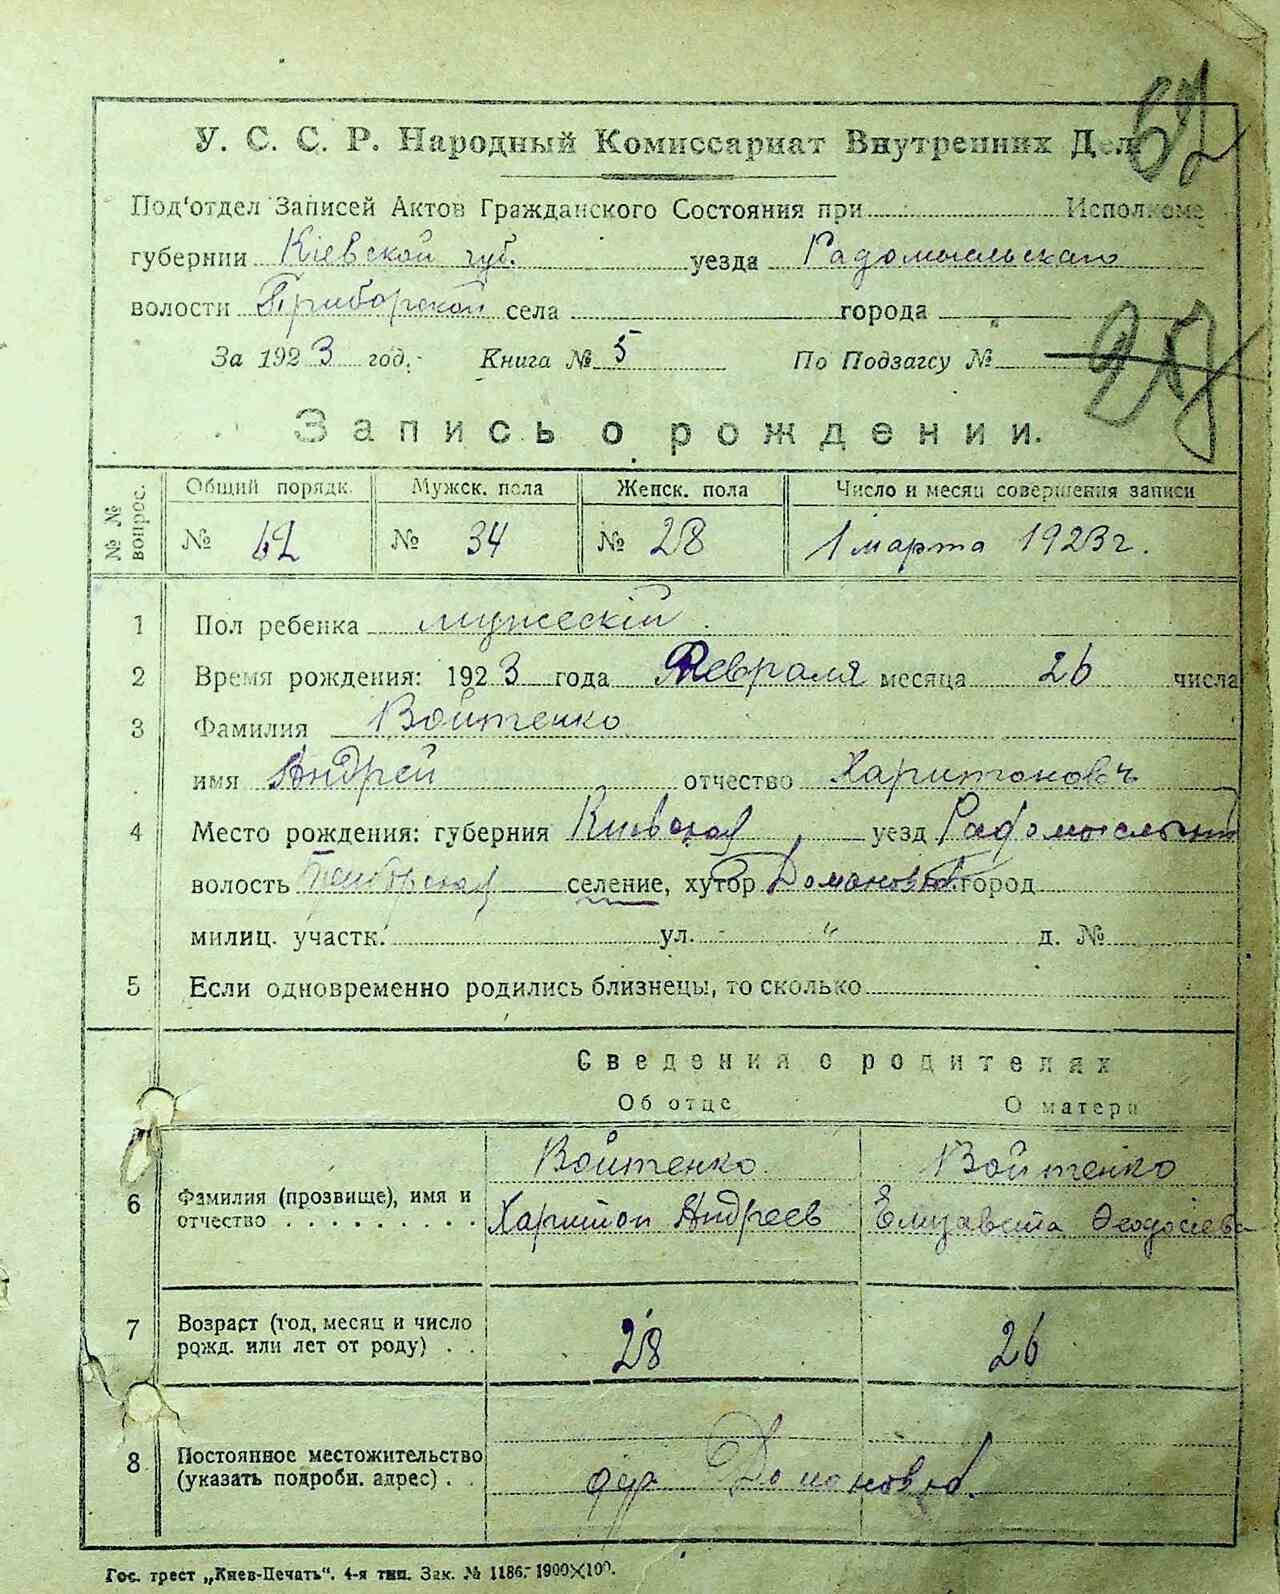 62
У. С. С. Р. Народный Комиссариат Внутренних Дел
Под'отдел Записей Актов Гражданского Состояния при Исполкоме
губернии Кіевской губ. уезда Радомысльскаго
волости Приборской села города
За 1923 год. Книга № 5 По Подзагсу №
Запись о рождении.
№ № вопрос. Общий порядк. Мужск. пола Женск. пола Число и месяц совершения записи
№ 62 № 34 № 28 1 марта 1923 г.
1 Пол ребенка мужескій
2 Время рождения: 1923 года Февраля месяца 26 числа
3 Фамилия Войтенко
имя Андрей отчество Харитоновъ
4 Место рождения: губерния Киевская уезд Радомысльский
волость Приборская селение, хутор город
милиц. участк. ул. " д. №
5 Если одновременно родились близнецы, то сколько
Сведения о родителях
Об отце О матери
6 Фамилия (прозвище), имя и отчество . . . . . . . . . .
Войтенко Войтенко
Харитон Андреев Елизавета Феодосіева
7 Возраст (год, месяц и число рожд. или лет от роду) . .
28 26
8 Постоянное местожительство (указать подробн. адрес) . .
дер.
Гос. трест „Киев-Печать“. 4-я тип. Зак. № 1186-1900×100.